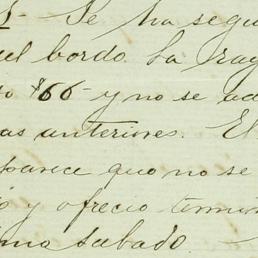 - Se ha segui
el bordo. La ray
$66- y no se ad
as anteriores. El
parece que no se
y ofrecio termin
imo sabado -